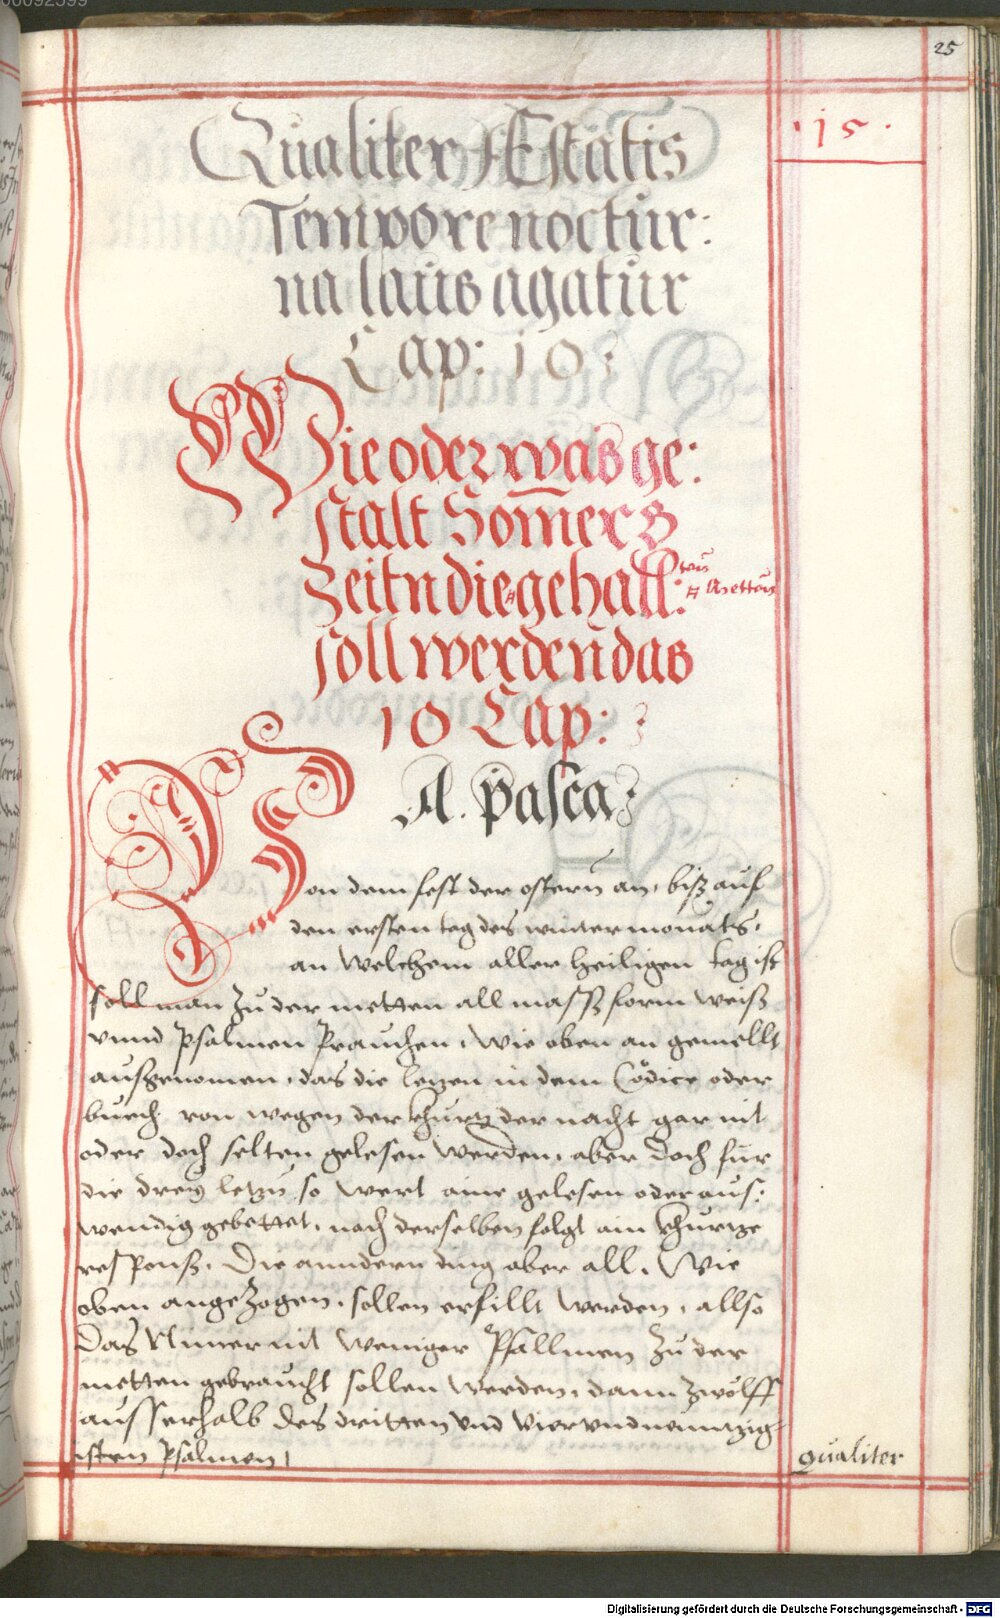 25
·15·
Qualiter Æstatis
Tempore noctur:
na laus agatur
Cap: 10:
Wie oder was ge:
stalt Som̄ers
Zeitn die gehalt:
ten
Metten
soll werden das
10 Cap:
A. pasca:
Von dem fest der ostern an, biß auf
den ersten tag des wintermonats,
an welchem aller heiligen tag ist
soll man zu der metten all masß form weiß
vnnd psalmen prauchen, wie oben an gemellt
ausgenomen, das die letzen in dem Codice oder
buech von wegen der khurtz der nacht gar nit
oder doch selten gelesen werden, aber doch fur
die drey letzn so wert aine gelesen oder aus:
wendig gebettet, nach derselben folgt ain khurtze
responß. Die anndern ding aber all, Wie
oben angezogen, sollen erfillt werden, allso
Das Nimer nit weniger Psallmen zu der
metten gebraucht sollen werden, dann zwölff
ausserhalb des dritten vnd viervndneuntzig-
isten psalmen,
Qualiter
Digitalisierung gefördert durch die Deutsche Forschungsgemeinschaft - DFG